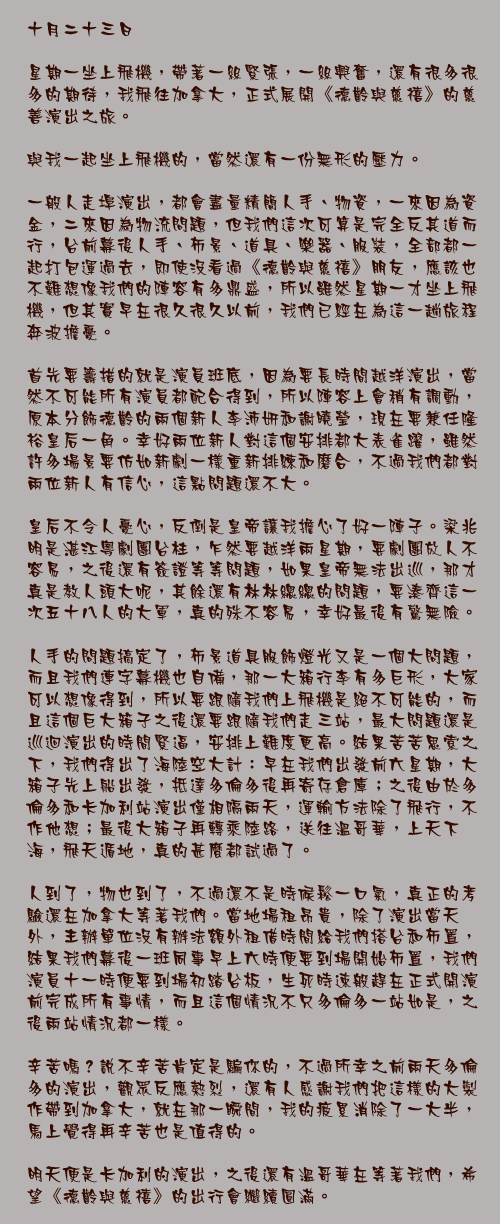 十月二十三日
星期一坐上飛機，帶著一股緊張，一股興奮，還有很多很
多的期待，我飛往加拿大，正式展開《德齡與慈禧》的慈
善演出之旅。
與我一起坐上飛機的，當然還有一份無形的壓力。
一般人走埠演出，都會盡量精簡人手、物資，一來因為資
金，二來因為物流問題，但我們這次可算是完全反其道而
行，台前幕後人手、布景、道具、樂器、服裝，全部都一
起打包運過去，即使沒看過《德齡與慈禧》朋友，應該也
不難想像我們的陣容有多鼎盛，所以雖然星期一才坐上飛
機，但其實早在很久很久以前，我們已經在為這一趟旅程
奔波擔憂。
首先要籌措的就是演員班底，因為要長時間越洋演出，當
然不可能所有演員都配合得到，所以陣容上會稍有調動，
原本分飾德齡的兩個新人李沛妍和謝曉瑩，現在要兼任隆
裕皇后一角。幸好兩位新人對這個安排都大表雀躍，雖然
許多場景要仿如新劇一樣重新排練和磨合，不過我們都對
兩位新人有信心，這點問題還不大。
皇后不令人憂心，反倒是皇帝讓我擔心了好一陣子。梁兆
明是湛江粵劇團台柱，乍然要越洋兩星期，要劇團放人不
容易，之後還有簽證等等問題，如果皇帝無法出巡，那才
真是教人頭大呢，其餘還有林林總總的問題，要湊齊這一
次五十八人的大軍，真的殊不容易，幸好最後有驚無險。
人手的問題搞定了，布景道具服飾燈光又是一個大問題，
而且我們連字幕機也自備，那一大箱行李有多巨形，大家
可以想像得到，所以要跟隨我們上飛機是絕不可能的，而
且這個巨大箱子之後還要跟隨我們走三站，最大問題還是
巡迴演出的時間緊逼，安排上難度更高。結果苦苦思索之
下，我們得出了海陸空大計：早在我們出發前六星期，大
箱子先上船出發，抵達多倫多後再寄存倉庫；之後由於多
倫多和卡加利站演出僅相隔兩天，運輸方法除了飛行，不
作他想；最後大箱子再轉乘陸路，送往溫哥華，上天下
海，飛天遁地，真的甚麼都試過了。
人到了，物也到了，不過還不是時候鬆一口氣，真正的考
驗還在加拿大等著我們。當地場租昂貴，除了演出當天
外，主辦單位沒有辦法額外租借時間給我們搭台和布置，
結果我們幕後一班同事早上六時便要到場開始布置，我們
演員十一時便要到場初踏台板，生死時速般趕在正式開演
前完成所有事情，而且這個情況不只多倫多一站如是，之
後兩站情況都一樣。
辛苦嗎？說不辛苦肯定是騙你的，不過所幸之前兩天多倫
多的演出，觀眾反應熱烈，還有人感謝我們把這樣的大製
作帶到加拿大，就在那一瞬間，我的疲累消除了一大半，
馬上覺得再辛苦也是值得的。
明天便是卡加利的演出，之後還有溫哥華在等著我們，希
望《德齡與慈禧》的出行會繼續圓滿。